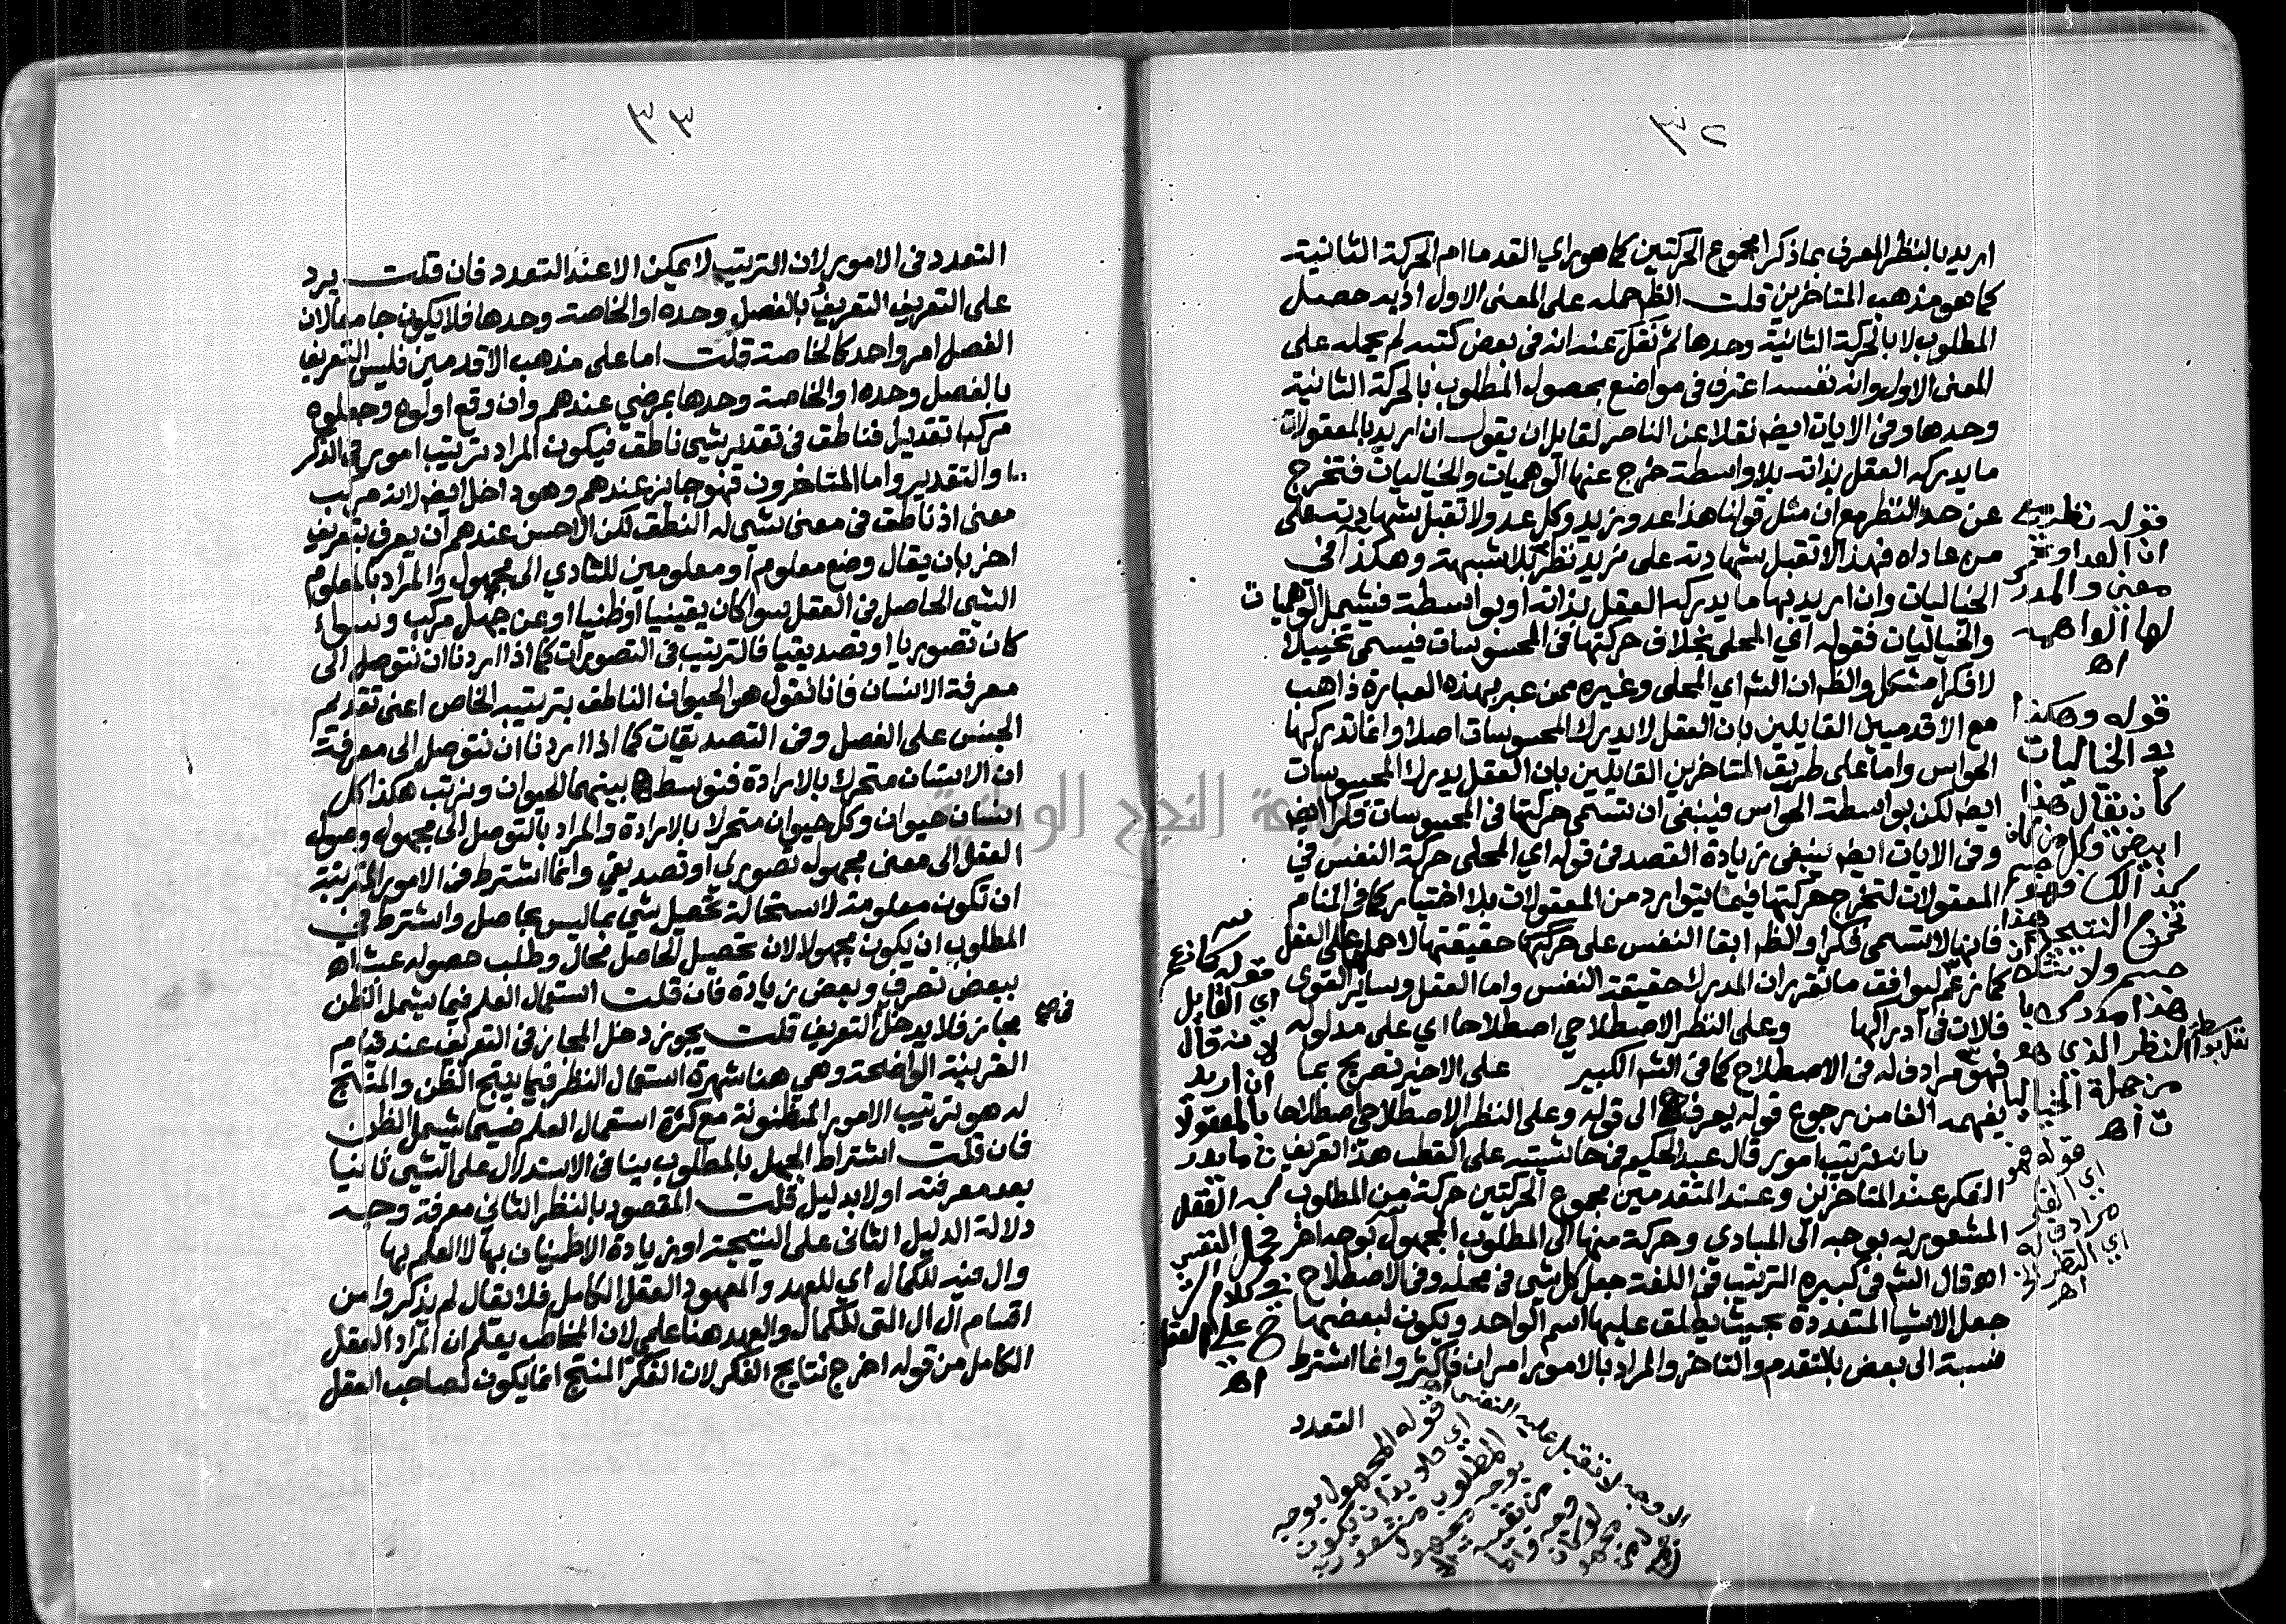 ٣٢
اريد بالنظر المعرف بما ذكر امجموع الحركتين كما هو راي القدما ام الحركة الثانية
كما هو مذهب المتاخرين قلت الظ حمله على المعنى الاول اذ به حصل
المطلوب لا بالحركة الثانية وحدها ثم نقل عنه انه في بعض كتبه لم يحمله على
المعنى الاول وانه نفسه اعترف في مواضع بحصول المطلوب بالحركة الثانية
وحدها وفي الايات ايضا نقلا عن الناصر لقايل ان يقول ان اريد بالمعقولات
ما يدركه العقل بذاته بلا واسطة خرج عنها الوهميات والخياليات فتخرج
عن حد النظر مع ان مثل قولنا هذا عدو زيد وكل عدو لا تقبل شهادته على
من عاداه فهذا لا تقبل شهادته على زيد نظر بلا شبهة وهكذا في
الخياليات وان اريد بها ما يدركه العقل بذاته او بواسطة فيشمل الوهميات
والخياليات فقوله اي المحلي بخلاف حركتها في المحسوسات فيسمى تخييلا
لا فكرا مشكل والظ ان الش اي المحلي وغيره ممن عبر بهذه العبارة ذاهب
مع الاقدمين القايلين بان العقل لا يدرك المحسوسات اصلا وانما تدركها
الحواس واما على طريق المتاخرين القايلين بان العقل يدرك المحسوسات
ايضا لكن بواسطة الحواس فينبغي ان تسمى حركتها في المحسوسات فكرا ايضا
وفي الايات ايضا ينبغي زيادة القصد في قوله اي المحلي حركة النفس في
المعقولات لتخرج حركتها فيما يتوارد من المعقولات بلا اختيار كما في المنام
فانها لا تسمى فكرا والظ ابقا النفس على حقيقتها لا حملها على العقل
كما زعم ليوافق ما تقرر ان المدرك حقيقة النفس واما العقل وساير القوى
فالات في ادراكها وعلى النظر الاصطلاحي اصطلاحا اي على مدلوله
فهو مرادف له في الاصطلاح كما في الش الكبير على الاخير تصريح بما
يفهمه الفا من رجوع قوله يعرف الى قوله وعلى النظر الاصطلاحي اصطلاحا
بانه ترتيب امور قال عبد الحكيم في حاشيته على القطب هذا تعريف
الفكر عند المتاخرين وعند المتقدمين مجموع الحركتين حركة من المطلوب
المشعور به بوجه الى المبادي وحركة منها الى المطلوب المجهول بوجه اخر
اه وقال الش في كبيره الترتيب في اللغة جعل كل شي في محله وفي الاصطلاح
جعل الاشيا المتعددة بحيث يطلق عليها اسم الواحد ويكون لبعضها
نسبة الى بعض بالتقدم والتاخر والمراد بالامور امران فاكثر وانما اشترط
التعدد
قوله نظر
ان العداوة
معنى والمدرك
لها الواهمة
اه
قوله وهكذا
الخياليات
كان يقال هذا
ابيض وكل
كذالك فهو جسم
تخرج النتيجة هذا
جسم ولا شك
هذا مدرك
النظر الذي هو
من جملة الخياليا
ت اه
قوله فهو
اي الفكر
مرادف له
اي النظر
اه
قوله كما زعم
اي القايل
لانه قال
ان اريد
بالمعقولا
ت ما يدر
كه العقل
فحمل النفس
في كلام الش
على العقل
اه
قوله المجهول بوجه
اي فلا بد ان يكون
المطلوب مشعورا به
بوجه مجهول
٣٣
التعدد في الامور لان الترتيب لا يمكن الا عند التعدد فان قلت يرد
على التعريف التعريف بالفصل وحده او الخاصة وحدها فلا يكون جامعا لان
الفصل امر واحد كالخاصة قلت اما على مذهب الاقدمين فليس التعريف
بالفصل وحده او الخاصة وحدها بمرضي عندهم وان وقع اولوه وجعلوه
مركبا تقديرا فناطق في تقدير شي ناطق فيكون المراد ترتيب امور في الذكر
او التقدير واما المتاخرون فهو جايز عندهم وهو داخل ايضا لانه مركب
معنى اذ ناطق في معنى شي له النطق لكن الاحسن عندهم ان يعرف بتعريف
اخر بان يقال وضع معلوم او معلومين للتادي الى مجهول والمراد بالمعلوم
الشي الحاصل في العقل سوا كان يقينيا او ظنيا او عن جهل مركب وسواء
كان تصوريا او تصديقيا فالترتيب في التصورات كما اذا اردنا ان نتوصل الى
معرفة الانسان فانا نقول هو الحيوان الناطق بترتيبه الخاص اعني تقديم
الجنس على الفصل وفي التصديقات كما اذا اردنا ان نتوصل الى معرفة
ان الانسان متحرك بالارادة فنوسط بينهما الحيوان ونرتب هكذا كل
انسان حيوان وكل حيوان متحرك بالارادة والمراد بالتوصل الى مجهول وصول
العقل الى معنى مجهول تصوري او تصديقي وانما اشترط في الامور المترتبة
ان تكون معلومة لاستحالة تحصيل شي بما ليس بحاصل واشترط في
المطلوب ان يكون مجهولا لان تحصيل الحاصل محال وطلب حصوله عبث اه
ببعض تصرف وبعض زيادة فان قلت استعمال العلم فيما يشمل الظن
مجاز فلا يدخل التعريف قلت يجوز دخل المجاز في التعريف عند قيام
القرينة الواضحة وهي هنا شهرة استعمال النظر فيما ينتج الظن والمنتج
له هو ترتيب الامور المظنونة مع كثرة استعمال العلم فيما يشمل الظن
فان قلت اشتراط الجهل بالمطلوب ينافي الاستدلال على الشي ثانيا
بعد معرفته اولا بدليل قلت المقصود بالنظر الثاني معرفة وجه
دلالة الدليل الثاني على النتيجة او زيادة الاطمينان بها لا العلم بها
وال فيه للكمال اي للعهد والمعهود العقل الكامل فلا يقال لم يذكروا من
اقسام ال ال التي للكمال والعهد هنا علمي لان المخاطب يعلم ان المراد العقل
الكامل من قوله اخرج نتايج الفكر لان الفكر المنتج انما يكون لصاحب العقل
جامعة النجاح الوطنية